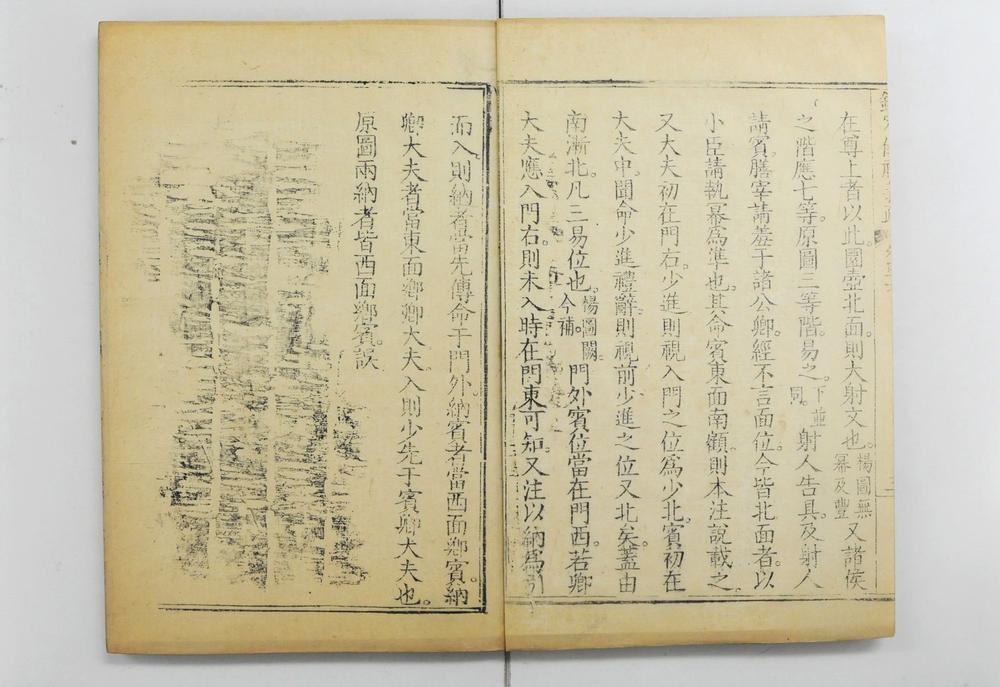 在尊上者以此圜壺北面則大射文也。楊圖無冪及豐又諸侯
之階應七等。原圖三等階。易之。下並同。射人告具。及射人
請賓。膳宰請羞于諸公卿。經不言面位。今皆北面者。以
小臣請執冪為準也。其命賓東面南顧。則本注說載之。
又大夫初在門右。少進則視入門之位為少北。賓初在
大夫中。聞命少進禮辭。則視前少進之位又北矣。蓋由
南漸北。凡三易位也。楊圖闕。今補。門外賓位當在門西。若卿
大夫應入門右。則未入時在門東可知。又注以納為引
而入則納者當先傳命于門外。納賓者當西面鄉賓。納
卿大夫者當東面鄉卿大夫。入則少先于賓卿大夫也。
原圖兩納者皆西面鄉賓。誤